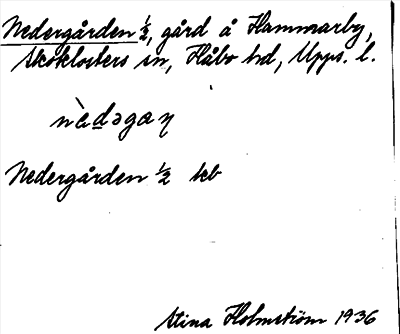 Nedergården ½, gård å Hammarby,
Skoklosters sn, Håbo hd, Upps. l.
Nedergården ½ jeb
Stina Holmström 1936